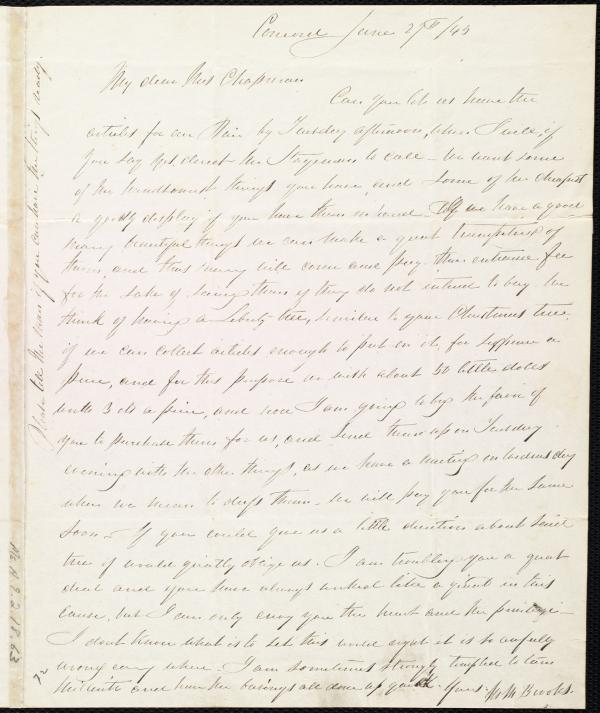 Concord June 27th /43
My dear Mrs Chapman
Can you let us have the
articles for our Fair by Tuesday afternoon, when I will, if
you say yes, direct the Stageman to call - We want some
of the handsomest things you have, and some of the cheapest
a goodly display if you have them on hand - If we have a good
many beautiful things we can make a great of
them, and thus many will come and pay their entrance fee
for the sake of seeing them if they do not intend to buy. We
think of having a Liberty tree, similar to your Christmas tree,
if we can collect articles enough to put on it, for sixpence a
piece, and for this purpose we wish about 50 little dolls
worth 3 cts a piece, and now I am going to beg the favor of
you to purchase them for us, and send them up on Tuesday
evening with the other things, as we have a meeting on Wednesday
when we mean to dress them - We will pay you for the same
soon - If you could give us a little direction about said
tree it would greatly oblige us. I am troubling you a great
deal and you have always worked like a giant in this
cause, but I can only envy you the heart and the privilege -
I dont know what is to set this world right it is so awfully
wrong every where. I am sometimes strongly tempted to turn
Millerite and have the business all done up quick. Yours. M M Brooks.
Please tell the man if you can have the things ready.
Ms.A.9.2.18.63
72